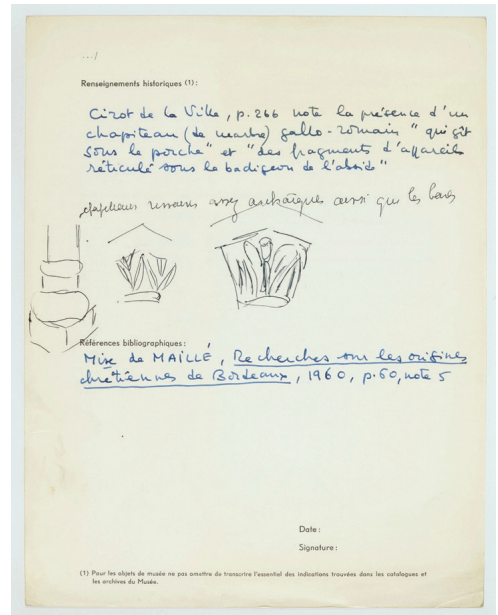 .../
Renseignements historiques (1) :
Cirot de la Ville, p. 266 note la présence d'un
chapiteau (de marbre) gallo-romain "qui gît
sous le porche" et "des fragments d'appareils
réticulé sous le badigeon de l'abside"
chapiteaux romans assez archaïques ainsi que les bases
Références bibliographiques :
Mise de MAILLÉ, Recherches sur les origines
chrétiennes de Bordeaux, 1960, p. 60, note 5
Date :
Signature :
(1) Pour les objets de musée ne pas omettre de transcrire l'essentiel des indications trouvées dans les catalogues et
les archives du Musée.